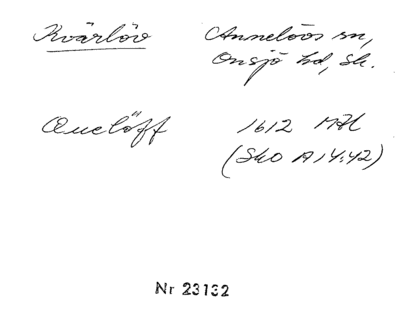 Kvärlöv Annelövs sn,
Onsjö hd, Sk.
Quelöff 1612
(Sko A14:42)
Nr 23132